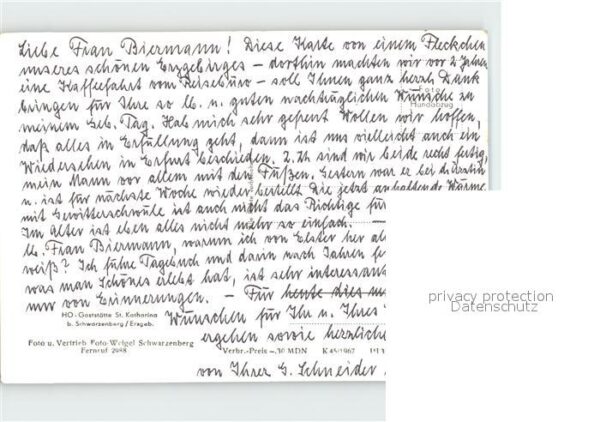 Liebe Frau Biermann! Diese Karte von einem Fleckchen
unseres schönen Erzgebirges - dorthin machten wir vor 2 Jahren
eine Kaffeefahrt vom Reisebüro - soll Ihnen ganz herzl. Dank
bringen für Ihre so lb. u. guten nachträglichen Wünsche zu
Foto
Handabzug
meinem Geb. Tag. Hab mich sehr gefreut Wollen wir hoffen,
daß alles in Erfüllung geht, dann ist uns vielleicht auch ein
Wiedersehen in Erfurt beschieden. Z. Zt. sind wir beide recht fertig,
mein Mann vor allem mit den Füßen. Gestern war er bei d.
u. ist für nächste Woche wieder bestellt Die jetzt anhaltende Wärme
mit Gewitterschwüle ist auch nicht das Richtige für
Im Alter ist eben alles nicht mehr so einfach. -
lb. Frau Biermann, warum ich von Elster her
weiß? Ich führe Tagebuch und darin nach Jahren
was man Schönes erlebt hat, ist sehr
nur von Erinnerungen. - Für heute dies
HO-Gaststätte St. Katharina
b. Schwarzenberg/Erzgeb.
Wünschen für Ihr u. Ihres
ergehen sowie
Foto u. Vertrieb Foto-Weigel Schwarzenberg
Fernruf 2988
Verbr.-Preis -,30 MDN K 45/1967
von Ihrer G. Schneider
privacy protection
Datenschutz